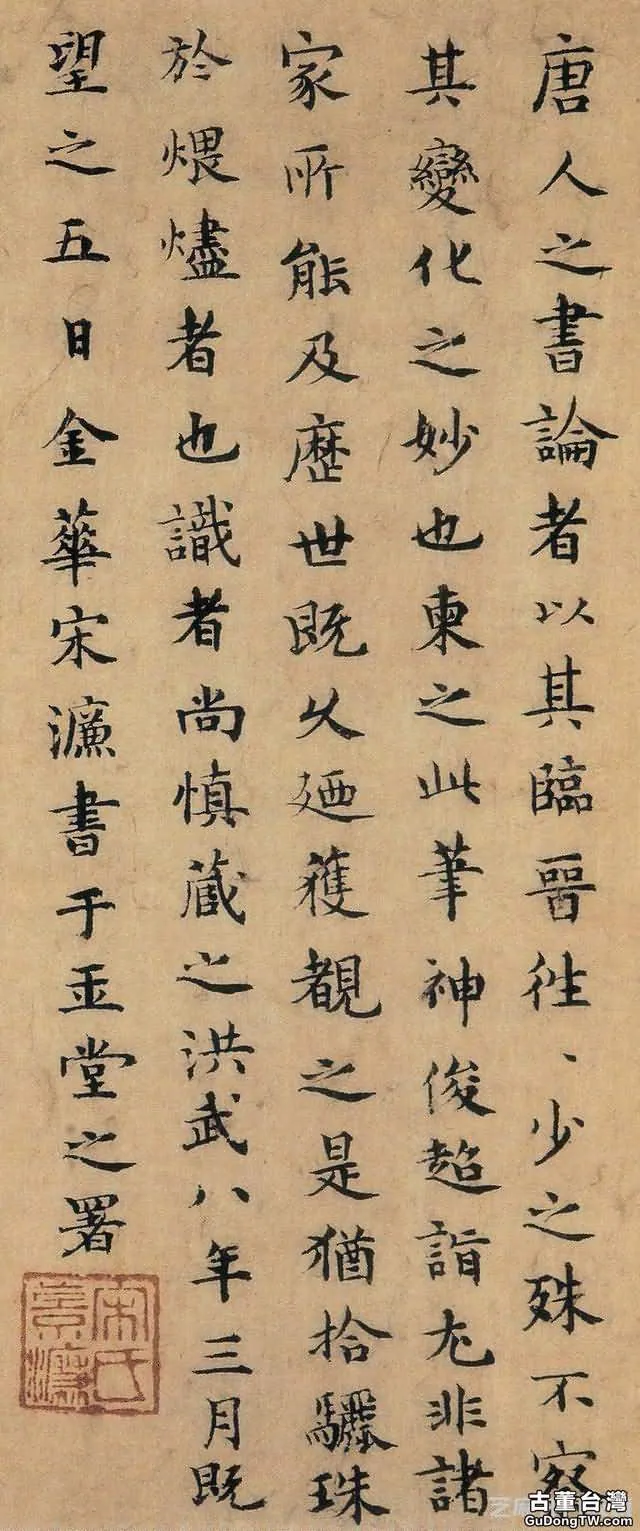 唐人之書論者以其臨晉徃、少之殊不察
其變化之妙也柬之此筆神俊超詣尤非諸
家所能及歷世既久廼獲覩之是猶拾驪珠
於煨燼者也識者尚慎藏之洪武八年三月既
望之五日金華宋濂書于玉堂之署
宋氏景濂
古董台灣
GuDongTW.com